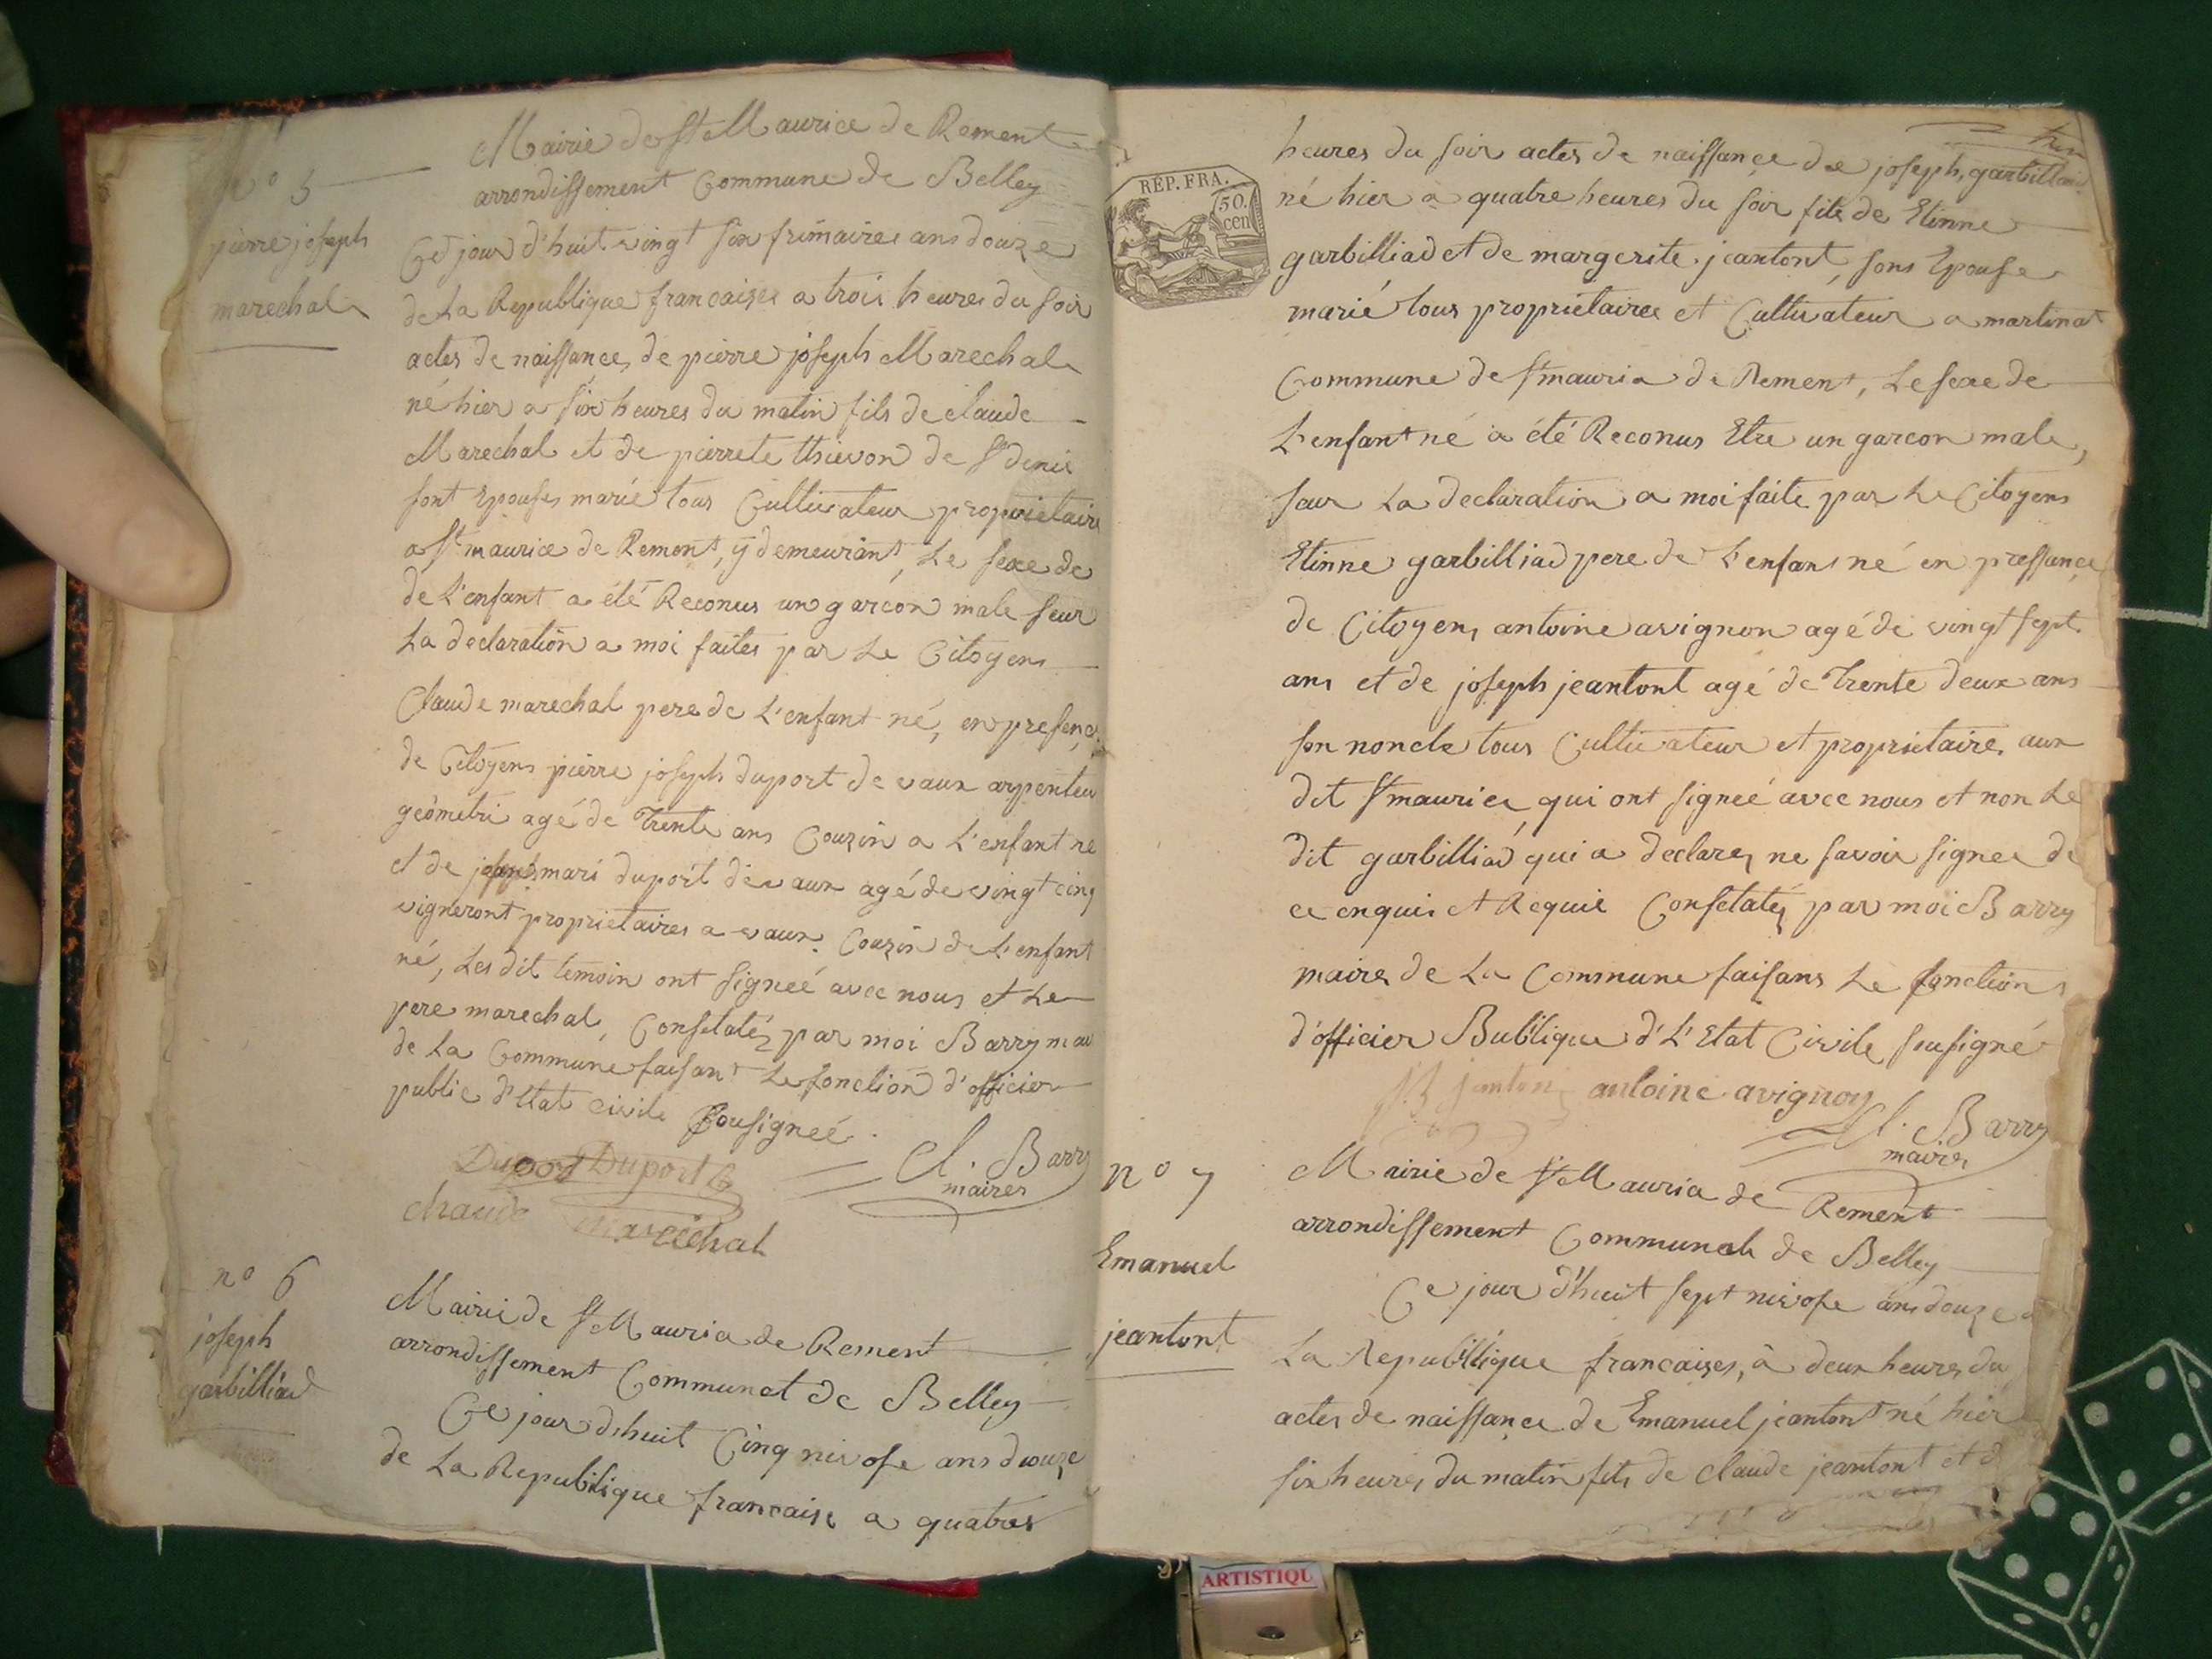 Mairie de St Maurice de Rement
arrondissement Commune de Belley
n° 5
pierre joseph
marechal
Ce jour d'huit vingt six frimaires ans douze
de La Republique francaises a trois heures du soir
actes de naissance de pierre joseph Marechal
né hier a six heures du matin fils de claude
Marechal et de pierrete thievon de St denis
sont Epouses marié tous Cultivateur propriétaire
a St maurice de Remont, y demeurant, Le sexe de
de L'enfant a été Reconus un garcon male seur
La declaration a moi faites par Le Citoyens
Claude marechal pere de L'enfant né, en presence
de Citoyens pierre joseph duport de vaux arpenteu
geometre agé de Trente ans Couzin a L'enfant né
et de mari duport de vaux agé de vingt cinq
vigneront proprietaires a vaux. Couzin de L'enfant
né, Les dit temoin ont signeé avec nous et Le
pere marechal, Constatéz par moi Barry mai
de La Commune faisant Le fonction d'officier
public d'Etat civile Sousigneé.
Duport Duport
Cl. Barry
maires
claude marechal
n° 6
joseph
garbilliad
Mairie de St Mauria de Rement
arrondissement Communat de Belley
Ce jour dhuit Cinq nivose ans douze
de La Republique francaise a quatres
RÉP. FRA.
50.
cen
heures du soir actes de naissance de joseph, garbilliad
né hier a quatre heures du soir fils de Etinne
garbilliad et de margerite jeantont, sons Epouse
marié tous propriétaires et Cultivateur a martinat
Commune de St mauria de Rement, Le sexe de
L'enfant né a été Reconus Etre un garcon male,
sur La declaration a moi faite par Le Citoyens
Etinne garbilliad pere de L'enfans né en pressance
de Citoyens antoine avignon agé de vingt sept
ans et de joseph jeantont agé de Trente deux ans
son noncle tous Cultivateur et propriétaire, aux
dit St maurice, qui ont signeé avec nous et non Le
dit garbilliad qui a declarez ne savoir signer de
ce enquis et Requis Constatéz par moi Barry
maires de La Commune faisans Le fonctions
d'officier Bublique d'L'Etat Civile sousigné
jantont antoine avignon
Cl. Barry
maires
n° 7
Emanuel
jeantont
Mairie de St Mauria de Rement
arrondissement Communale de Belley
Ce jour d'huit sept nivose ans douze
La Republique francaises, à deux heures du
actes de naissance de Emanuel jeantont né hier
six heures du matin fils de claude jeantont et d
ARTISTIQU